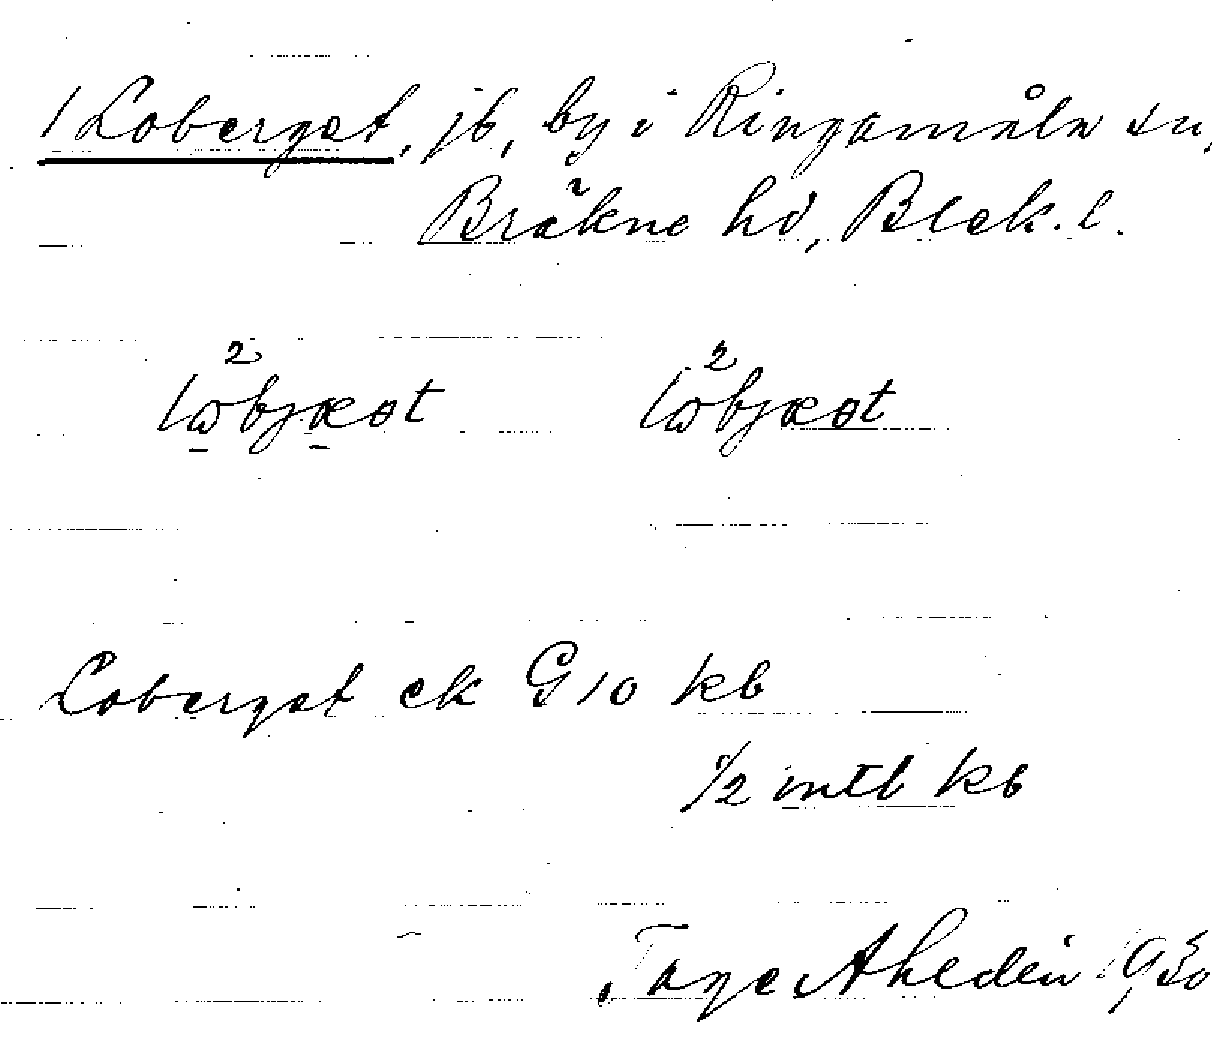 / Loberget, jb, by i Ringamåla sn,
Bräkne hd, Blek. l.
2 2
lωbjæot lωbjæot
Loberget ek G10 kb
1/2 mtl kb
Tage Ahldén 1930